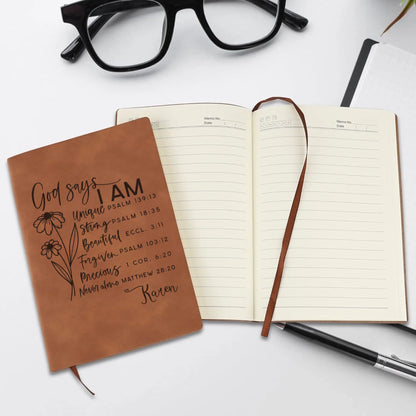 God says
I AM
Unique PSALM 139:13
Strong PSALM 18:35
Beautiful ECCL. 3:11
Forgiven PSALM 103:12
Precious 1 COR. 6:20
Never alone MATTHEW 28:20
Karen
Memo No.
Date
Memo No.
Date